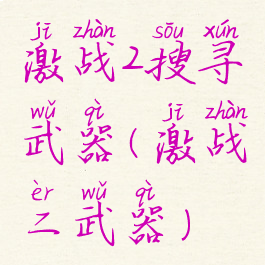 jī zhàn sōu xún
激战2搜寻
wǔ qì jī zhàn
武器(激战
èr wǔ qì
二武器)